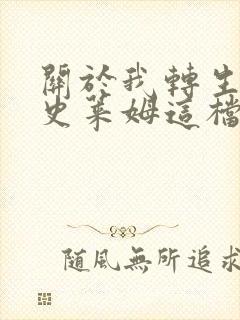 關於我轉生
史萊姆這檔
隨風無所追求